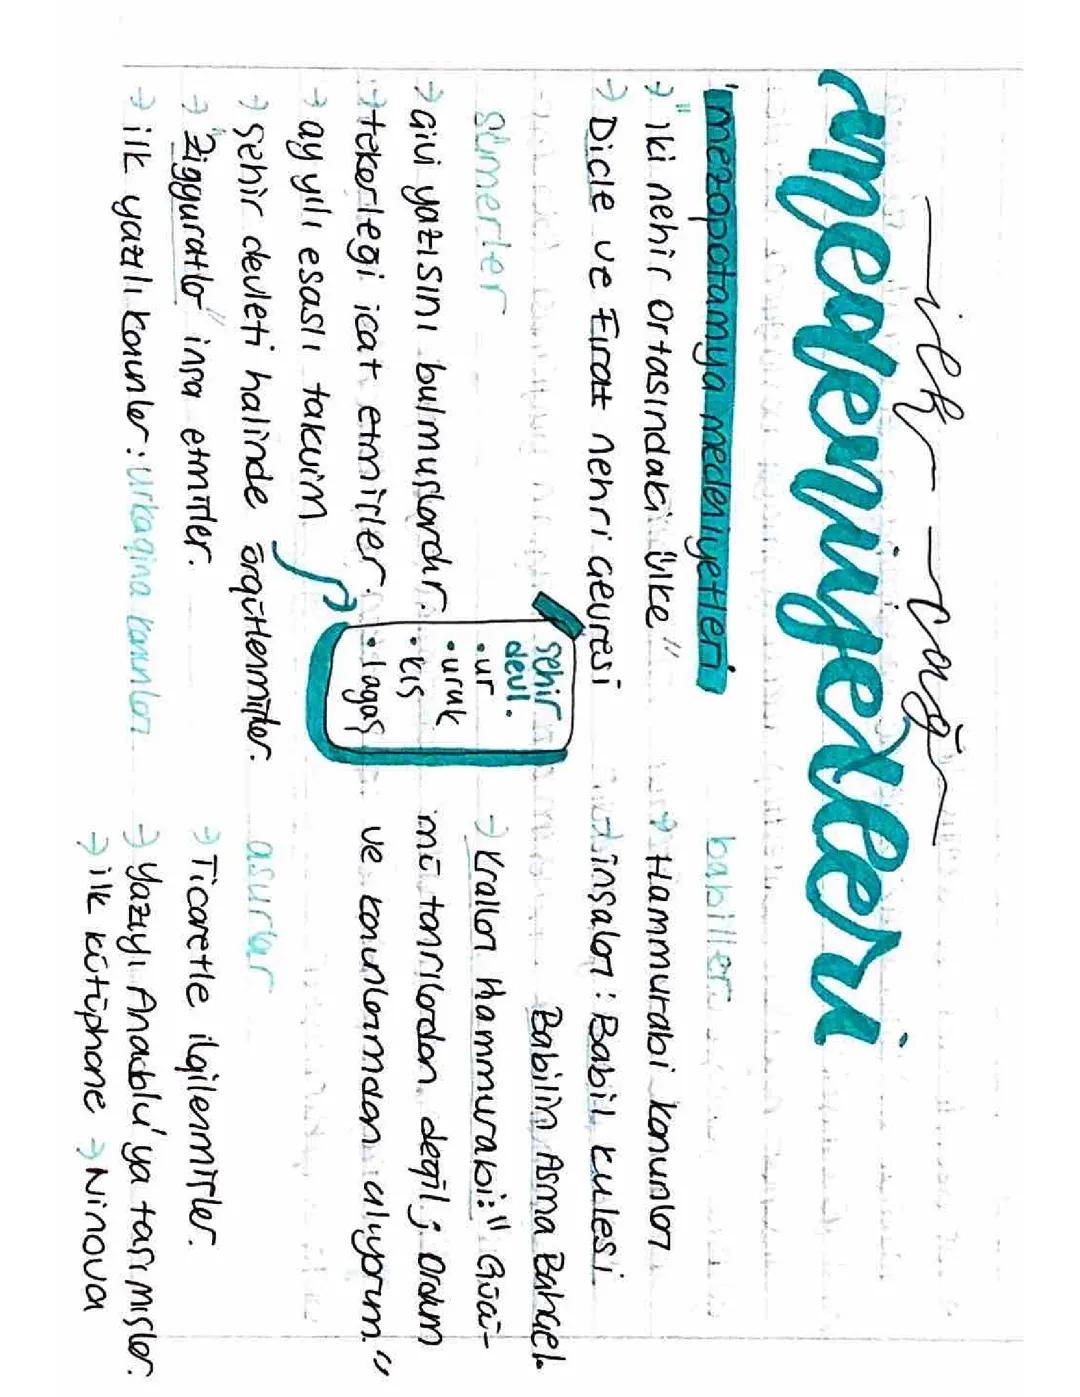 ilk çağ
medeniyetleri
mezopotamya medeniyetleri
→ "iki nehir ortasındaki ülke"
→ Dicle ve Fırat nehri çevresi
sümerler
→ çivi yazısını bulmuşlardır.
→ tekerlegi icat etmişler.
→ ay yılı esaslı takvim
→ şehir devleti halinde örgütlenmişler.
→ "Zigguratla" inşa etmişler.
→ ilk yazılı kanunlar: urkagina kanunları
şehir
devl.
• ur
• uruk
• kış
• lagaş
babiller
→ Hammurabi kanunları
→ inşaları: Babil kulesi
Babilin Asma Bahçel.
→ Kralları Hammurabi: "Gücü-
mü tanrılardan değil; Ordum
ve kanunlarımdan alıyorum."
asurlar
→ Ticaretle ilgilenmişler.
→ Yazıyı Anadolu'ya taşımışlar.
→ ilk kütüphane → Ninova